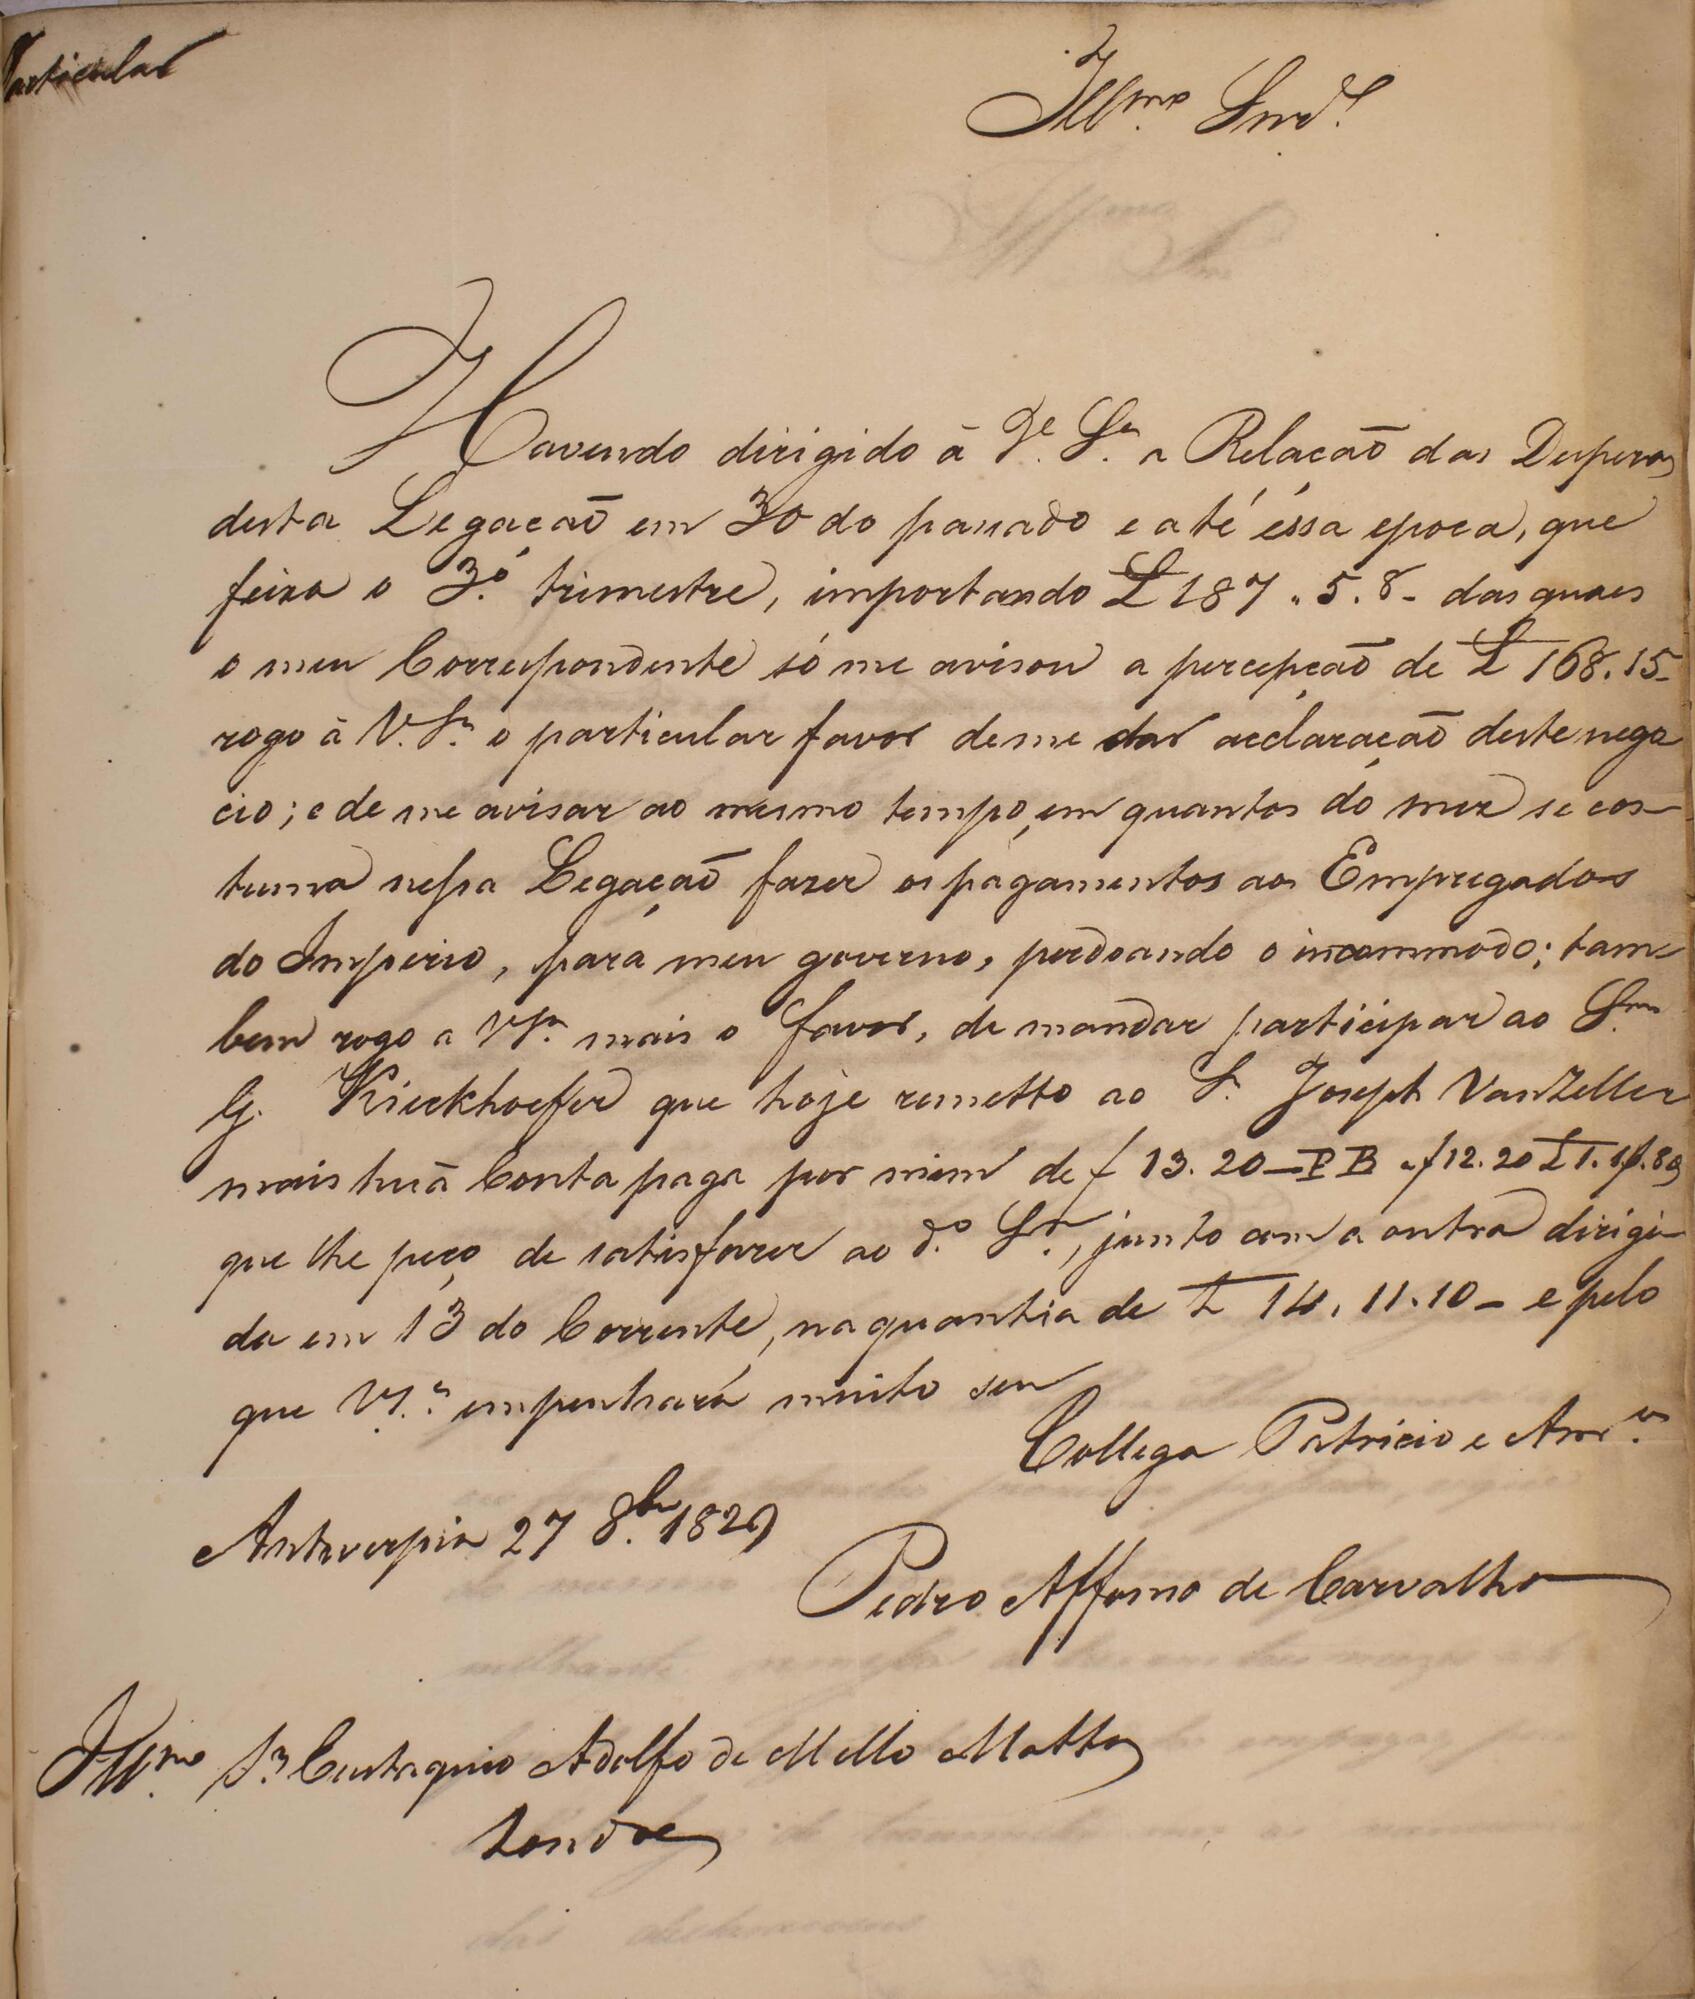 Particular
Illmo Snr.
Havendo dirigido á V. Sa. a Relação das Despezas
desta Legação em 30 do passado e até éssa epoca, que
feixa o 3º trimestre, importando £ 187.5.8 - das quaes
o meu Correspondente só me avisou a percepção de £ 168.15-
rogo á V. Sa. o particular favor de me dar acclaração deste nego
cio; e de me avisar ao mesmo tempo, em quantos do mez se cos-
tuma nessa Legação fazer os pagamentos aos Empregados
do Imperio, para meu governo, perdoando o incommodo; tam-
bem rogo a VSa. mais o favor, de mandar participar ao Snr
G. Kieckhoefer que hoje remetto ao Sr. Joseph VanZeller
mais huã Conta paga por mim de f 13.20 - P B a f 12.20
que lhe peço de satisfazer ao do. Sr., junto com a outra dirigi-
da em 13 do Corrente, na quantia de £ 14.11.10 - e pelo
que VSa. empenhará muito seu
Collega Patricio e Amo.
Antwerpia 27 8bro. 1829
Pedro Affonso de Carvalho
Illmo. Sr. Eustaquio Adolfo de Mello Mattos
Londres